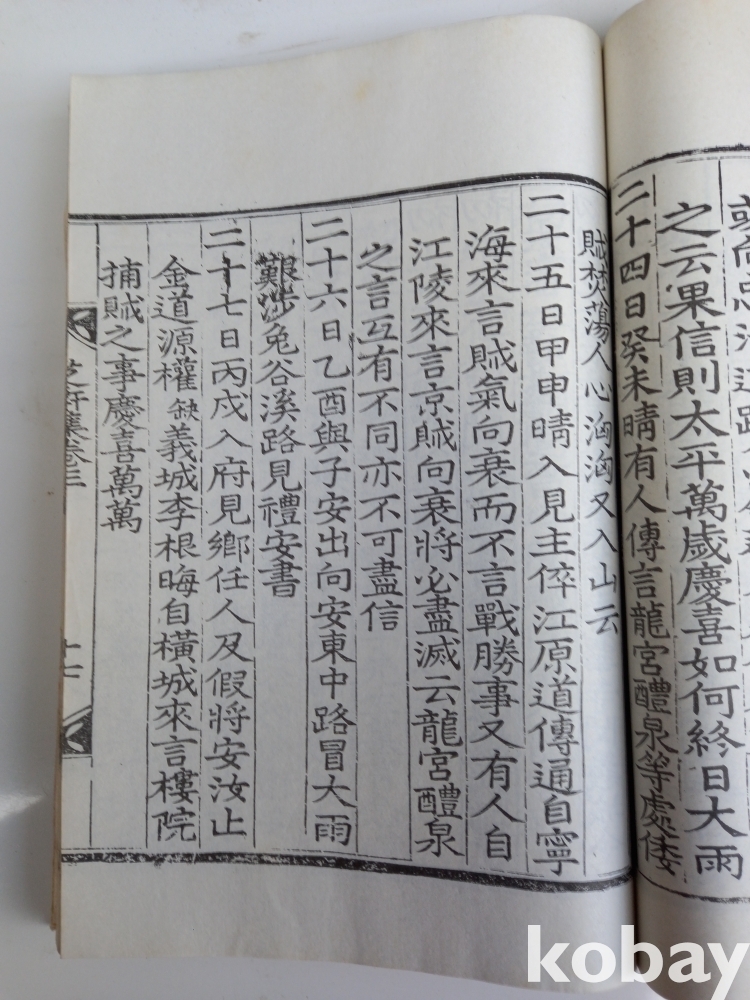 之云果信則太平萬歲慶喜如何終日大雨
二十四日癸未晴有人傳言龍宮醴泉等處倭
賊焚蕩人心洶洶又入山云
二十五日甲申晴入見主倅江原道傳通自寧
海來言賊氣向衰而不言戰勝事又有人自
江陵來言京賊向衰將必盡滅云龍宮醴泉
之言互有不同亦不可盡信
二十六日乙酉與子安出向安東中路冒大雨
艱涉兔谷溪路見禮安書
二十七日丙戌入府見鄕任人及假將安汝止
金道源權缺義城李根晦自橫城來言樓院
捕賊之事慶喜萬萬
集卷三
十七
kobay